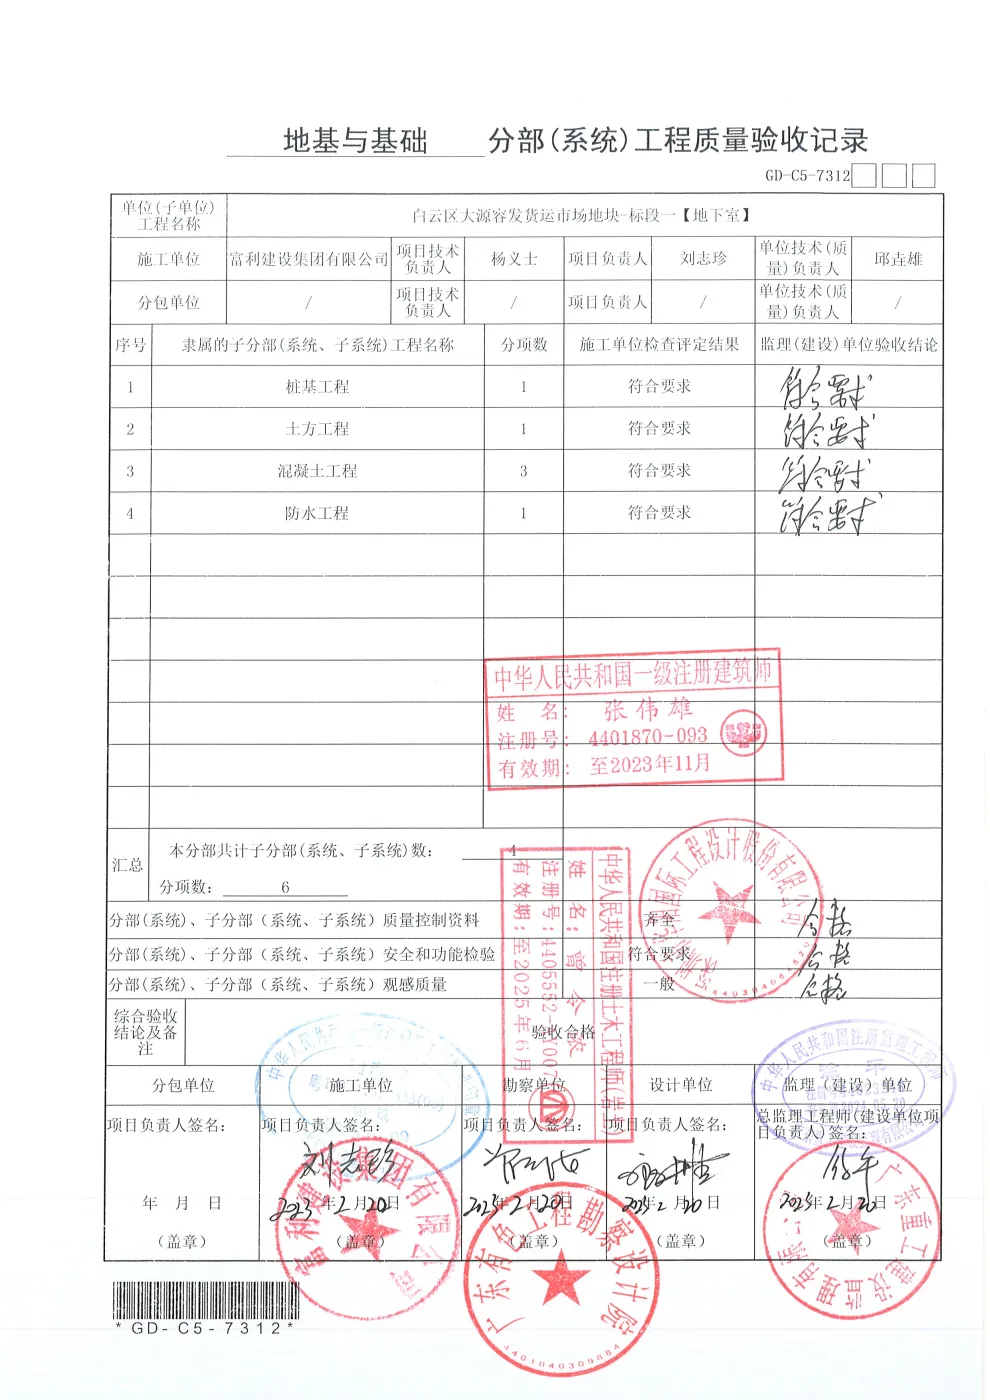 地基与基础 分部(系统)工程质量验收记录
GD-C5-7312
单位(子单位)工程名称 白云区大源容发货运市场地块-标段一【地下室】
施工单位 富利建设集团有限公司 项目技术负责人 杨义士 项目负责人 刘志珍 单位技术(质量)负责人 邱垚雄
分包单位 / 项目技术负责人 / 项目负责人 / 单位技术(质量)负责人 /
序号 隶属的子分部(系统、子系统)工程名称 分项数 施工单位检查评定结果 监理(建设)单位验收结论
1 桩基工程 1 符合要求 符合要求
2 土方工程 1 符合要求 符合要求
3 混凝土工程 3 符合要求 符合要求
4 防水工程 1 符合要求 符合要求
中华人民共和国一级注册建筑师
姓 名: 张伟雄
注册号: 4401870-093
有效期: 至2023年11月
汇总 本分部共计子分部(系统、子系统)数: 4
分项数: 6
分部(系统)、子分部(系统、子系统)质量控制资料 齐全 合格
分部(系统)、子分部(系统、子系统)安全和功能检验 符合要求 合格
分部(系统)、子分部(系统、子系统)观感质量 一般 合格
中华人民共和国注册土木工程师(岩土)
有效期:至2025年6月
综合验收结论及备注 验收合格
分包单位 施工单位 勘察单位 设计单位 监理(建设)单位
项目负责人签名: 项目负责人签名: 项目负责人签名: 项目负责人签名: 总监理工程师(建设单位项目负责人)签名:
刘志珍
年 月 日 2023年2月20日 年2月20日 年2月20日 年2月20日
(盖章) (盖章) (盖章) (盖章) (盖章)
富利建设集团有限公司
广东有色工程勘察设计院
4401040309884
中华人民共和国注册监理工程师
*GD-C5-7312*